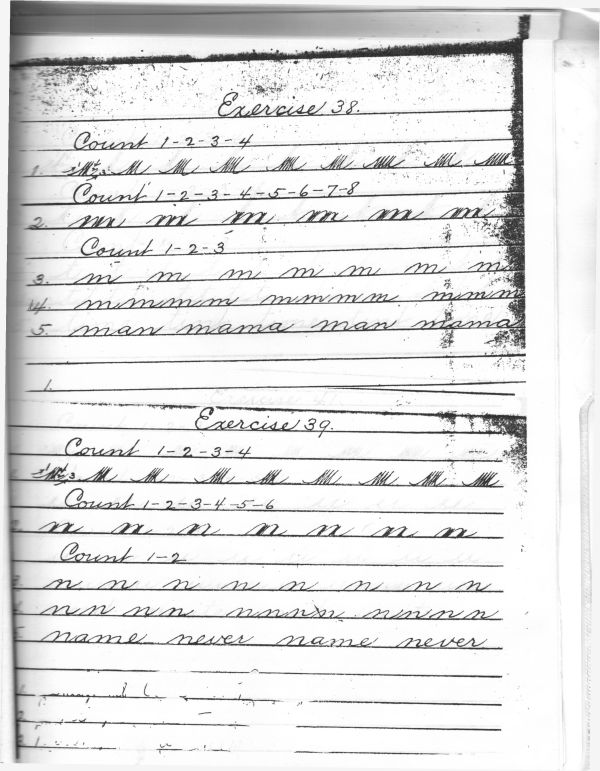 Exercise 38.
Count 1-2-3-4
1.
Count 1-2-3-4-5-6-7-8
2. m m m m m m
Count 1-2-3
3. m m m m m m m
4. mmmmm mmmmm mmmm
5. man mama man mama
1.
Exercise 39.
Count 1-2-3-4
Count 1-2-3-4-5-6
n n n n n n n
Count 1-2
3 n n n n n n n n
4 nnnn nnnn nnnn
5 name never name never